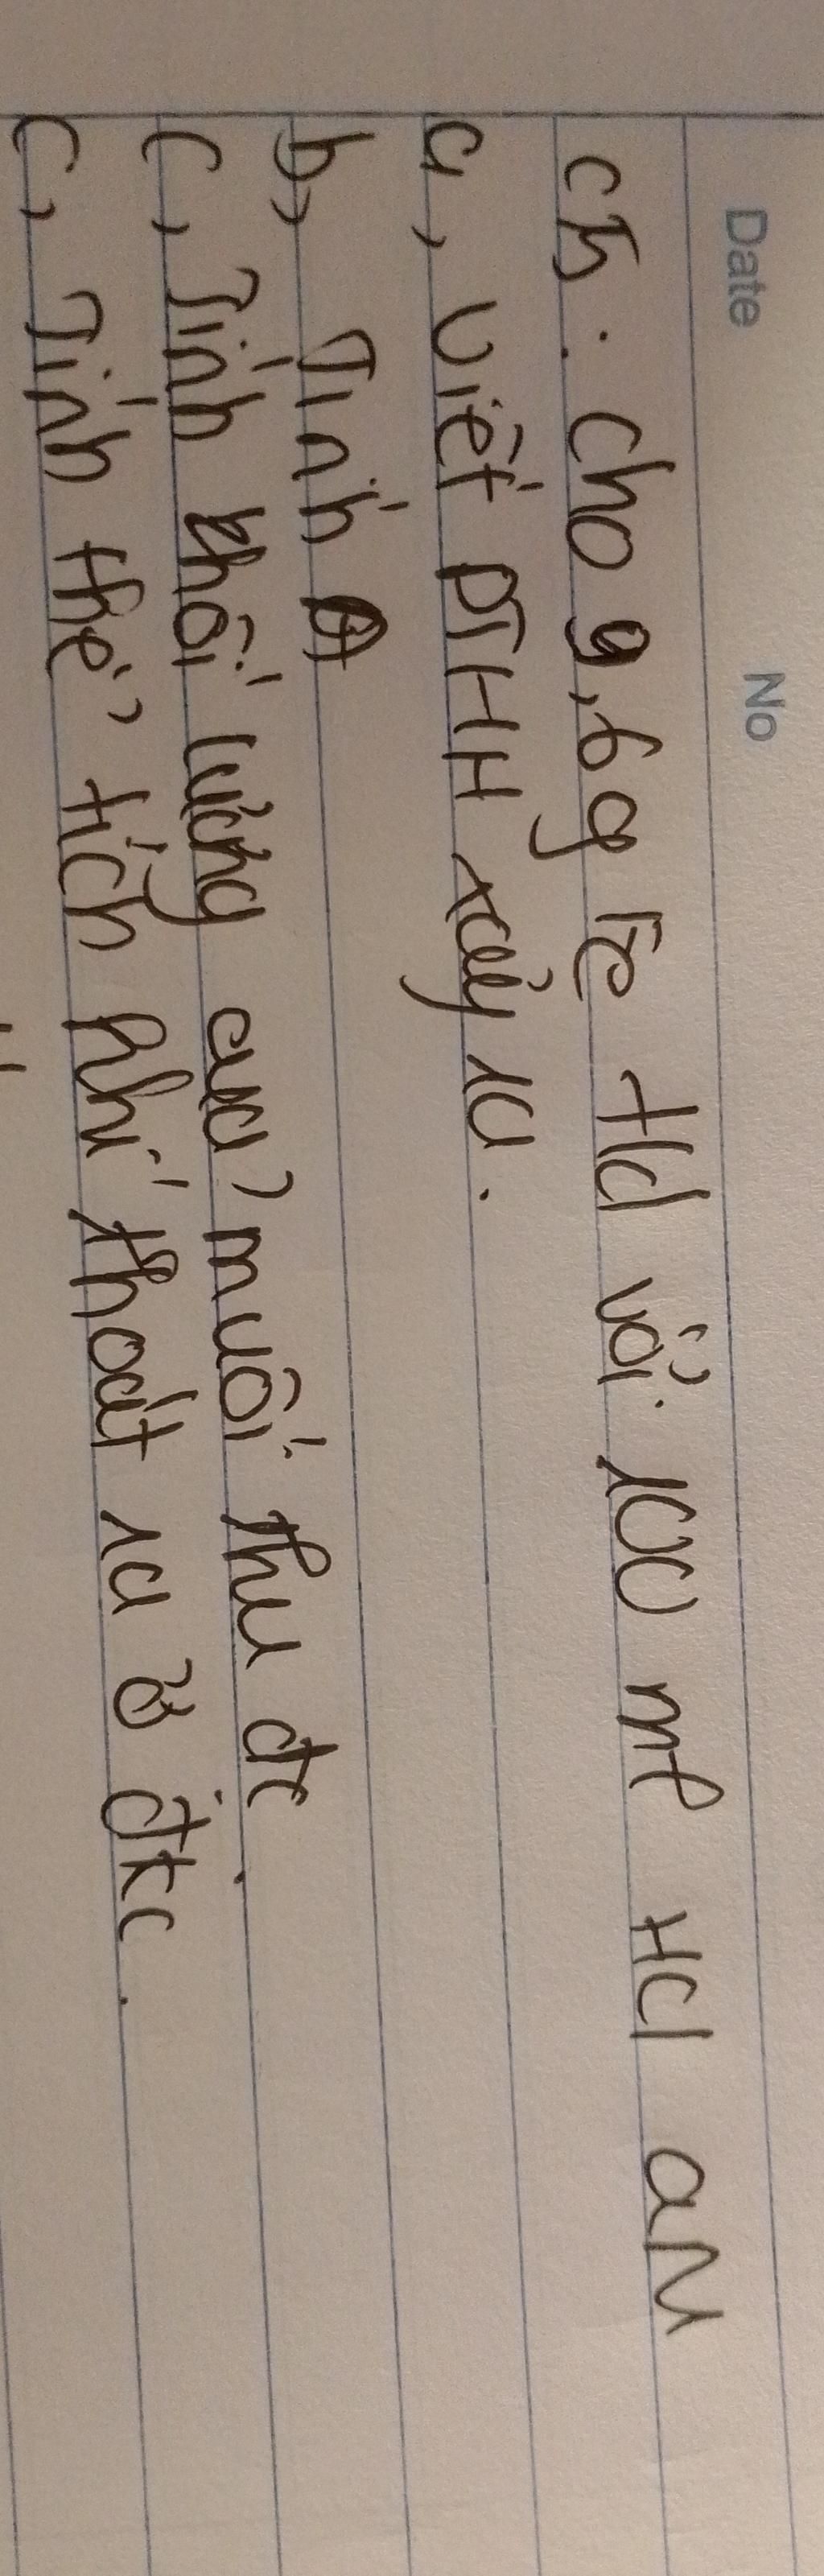 Date No
CB: Cho 9,6g Fe tld với 100 ml HCl aM
a, Viết PTHH xảy ra.
b, Tính a
c, Tính khối lượng của muối thu đc.
c, Tính thể tích khí thoát ra ở đkc.